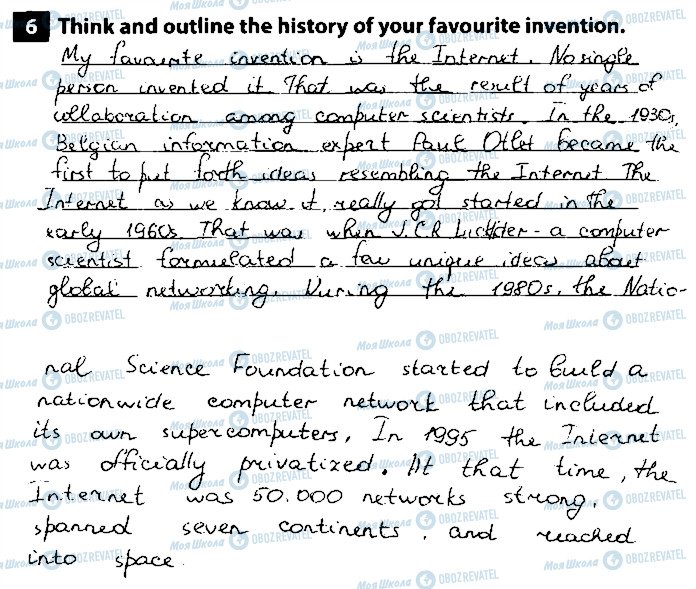 6 Think and outline the history of your favourite invention.
My favourite invention is the Internet. No single
person invented it. That was the result of years of
collaboration among computer scientists. In the 1930s,
Belgian information expert Paul Otlet became the
first to put forth ideas resembling the Internet. The
Internet as we know it, really got started in the
early 1960s. That was when J.C.R. Lickliter - a computer
scientist formulated a few unique ideas about
global networking. During the 1980s, the Natio-
nal Science Foundation started to build a
nationwide computer network that included
its own supercomputers. In 1995 the Internet
was officially privatized. At that time, the
Internet was 50.000 networks strong,
spanned seven continents, and reached
into space.